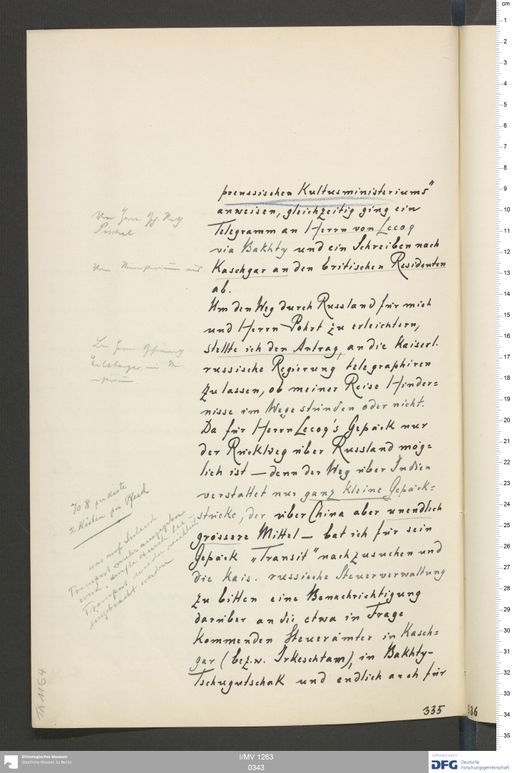 preussischen Kultusministeriums"
anweisen, gleichzeitig ging ein
Telegramm an Herrn von Lecoq
via Bakhty und ein Schreiben nach
Kaschgar an den britischen Residenten
ab.
Um den Weg durch Russland für mich
und Herrn Pohrt zu erleichtern,
stellte ich den Antrag, an die Kaiserl.
russische Regierung telegraphiren
zu lassen, ob meiner Reise Hinder=
nisse im Wege stünden oder nicht.
Da für Herrn Lecoq's Gepäck nur
der Rückweg über Russland mög=
lich ist — denn der Weg über Indien
verstattet nur ganz kleine Gepäck=
stücke, der über China aber unendlich
grössere Mittel — bat ich für sein
Gepäck „Transit" nachzusuchen und
die Kais. russische Steuerverwaltung
zu bitten eine Benachrichtigung
darüber an die etwa in Frage
kommenden Steuerämter in Kasch=
gar (bezw. Irkeschtam), in Bakhty-
Tschugutschak und endlich auch für
70 8
2 Kisten pro Pferd
TA 1164
335
336
I/MV 1263
0343
Ethnologisches Museum
Staatliche Museen zu Berlin
DFG Deutsche
Forschungsgemeinschaft